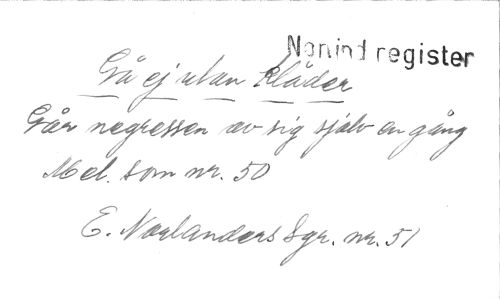 Nonind register
Gå ej utan kläder
Går negressen av sig själv en gång
Mel. som nr. 50
E. Norlanders Sgr. nr. 51